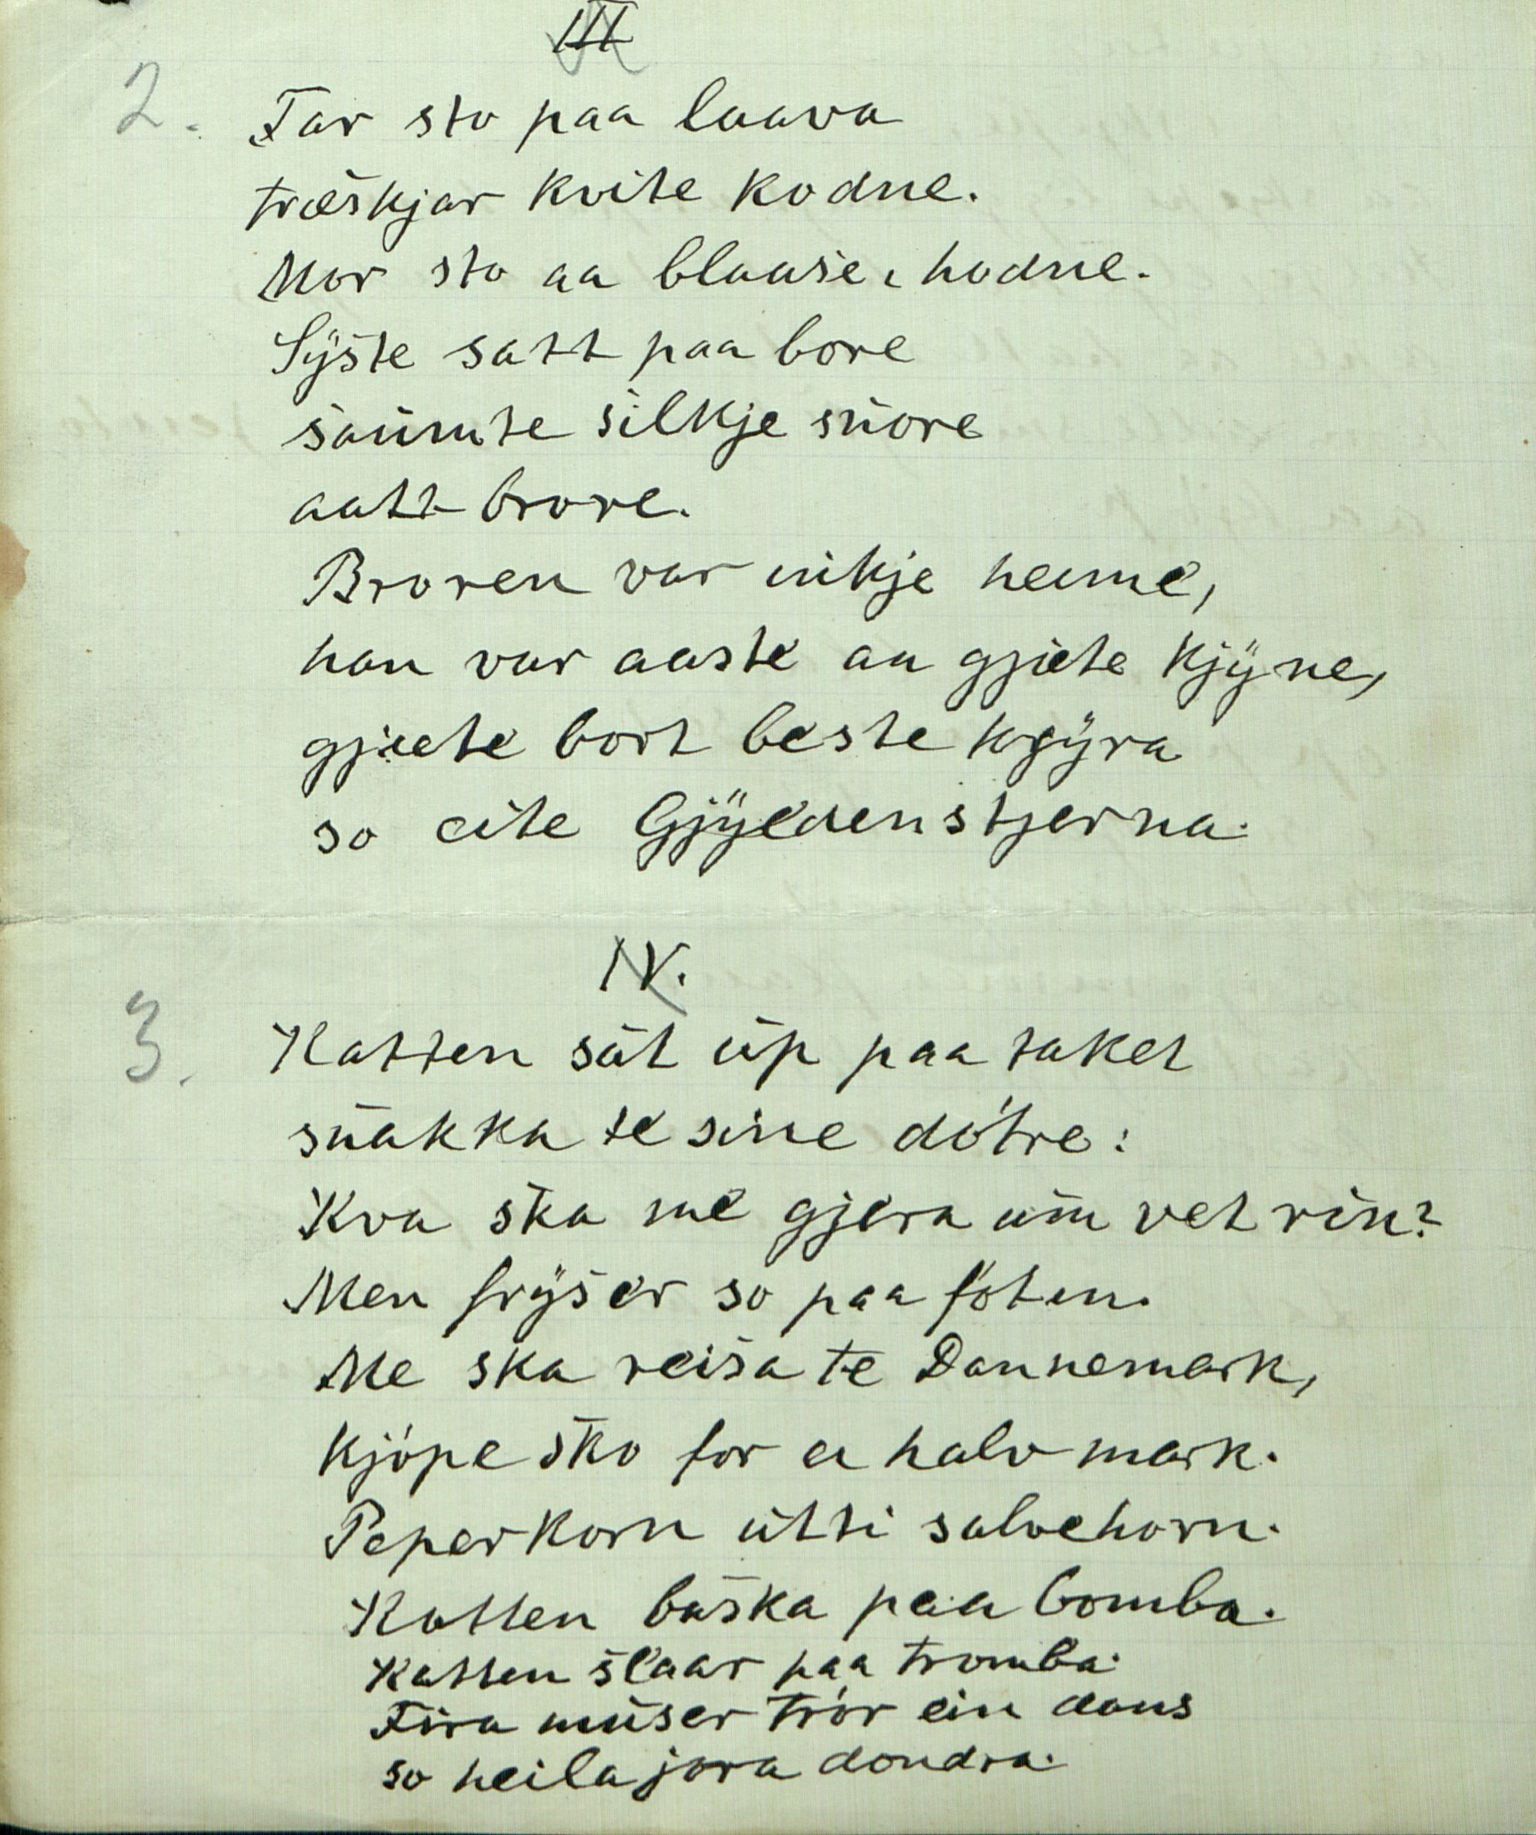 III
2. Far sto paa laava
træskjar kvite kodne.
Mor sto aa blaase i hodne.
Syste satt paa bore
saumte silkje snore
aatt brore.
Broren var inkje heime,
han var aaste aa gjæte kjyne,
gjæte bort beste kyra
so eite Gjyldenstjerna.
IV.
3. Katten sat up paa taket
snakka te sine dótre:
Kva ska me gjera um vetrin?
Men fryser so paa fótin.
Me ska reisa te Dannemark,
kjópe sko for ei halv mark.
Peperkorn utti salvehorn.
Katten baska paa bomba.
Katten slaar paa tromba.
Fira muser trór ein dans
so heila jora dondra.